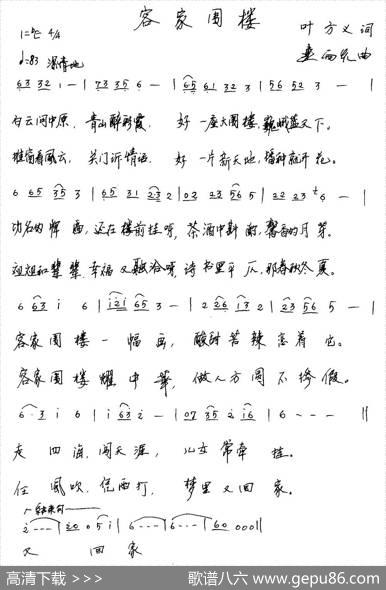 客家围楼
1=♭E 4/4 叶方义 词
♩=83 深情地 曲
6 3 3 2 i - | 7 3 3 5 6 - | 6 5 6 1 3 2 3 | 5 6 5 2 3 - |
白云问中原, 青山醉彩霞, 好一座大围楼, 巍峨盖天下。
推窗看风云, 关门诉情话, 好一片新天地, 播种就开花。
6 6 5 3 5 3 | 6 5 3 1 2 3 2 | 0 2 2 3 5 6 5 | 2 2 2 3 6 - |
功名的辉画, 还在楼前挂呀, 茶酒中斟酌, 馨香的月芽。
祖祖和辈辈, 幸福又融洽呀, 诗书里平仄, 那春秋冬夏。
6 6 3 i 6 | i 2 i 6 5 3 - | 2 2 6 1 3 2 | 2 3 5 6 5 - |
客家围楼一幅画, 酸甜苦辣恋着它。
客家围楼耀中华, 做人方圆不掺假。
6 · 3 i 6 | i 6 3 2 - | 0 7 3 5 2 i 6 | 6 - - - :||
走四海, 闯天涯, 儿女常牵挂。
任风吹, 任雨打, 梦里又回家。
i - - - | i 0 0 5 i | 6 - - - | 6 - - - | 6 0 0 0 0 ||
又 回 家
高清下载 >>> 歌谱八六 www.gepu86.com